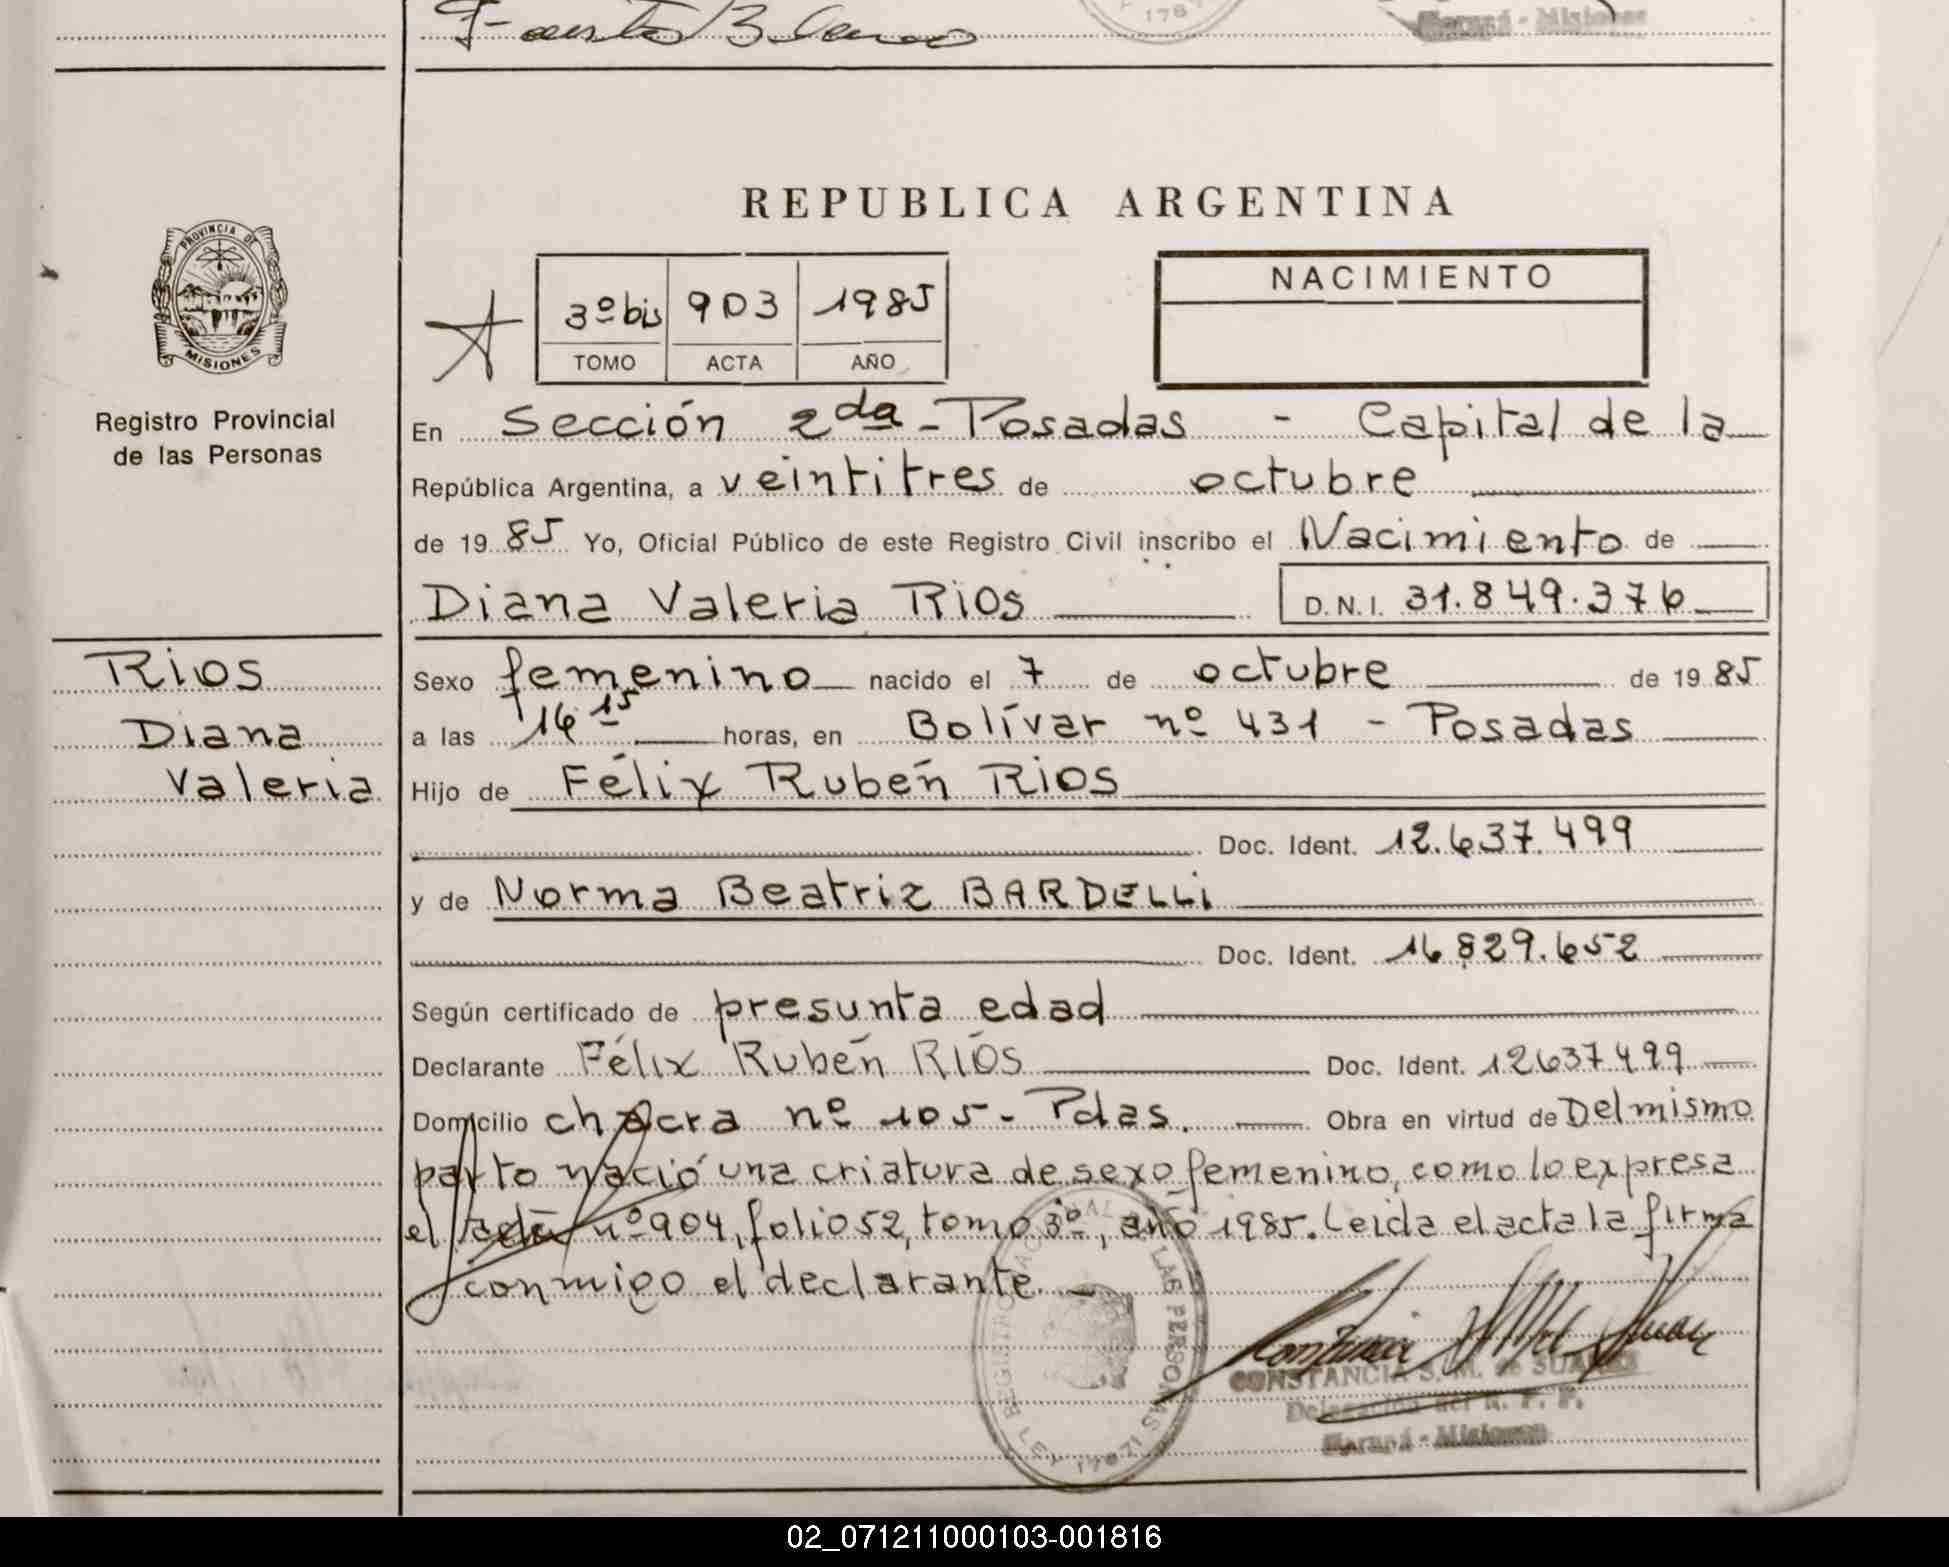 Misiones
PROVINCIA DE
MISIONES
Registro Provincial
de las Personas
REPUBLICA ARGENTINA
3º bis 903 1985
TOMO ACTA AÑO
NACIMIENTO
En Sección 2da - Posadas - Capital de la
República Argentina, a veintitres de octubre
de 1985 Yo, Oficial Público de este Registro Civil inscribo el Nacimiento de
Diana Valeria RIOS D.N.I. 31.849.376
Rios
Diana
Valeria
Sexo femenino nacido el 7 de octubre de 1985
a las 16 15 horas, en Bolívar nº 431 - Posadas
Hijo de Félix Rubén RIOS
Doc. Ident. 12.637.499
y de Norma Beatriz BARDELLI
Doc. Ident. 16.829.652
Según certificado de presunta edad
Declarante Félix Rubén RIOS Doc. Ident. 12637499
Domicilio chacra nº 105 - Pdas. Obra en virtud de Del mismo
parto nació una criatura de sexo femenino, como lo expresa
el acta nº 904, folio 52, tomo 3º, año 1985. Leida el acta la firma
conmigo el declarante. -
REGISTRO NACIONAL DE LAS PERSONAS
LEY 17671
CONSTANCIA S. M. de SUAREZ
Delegación del R. P. P.
Misiones
02_071211000103-001816